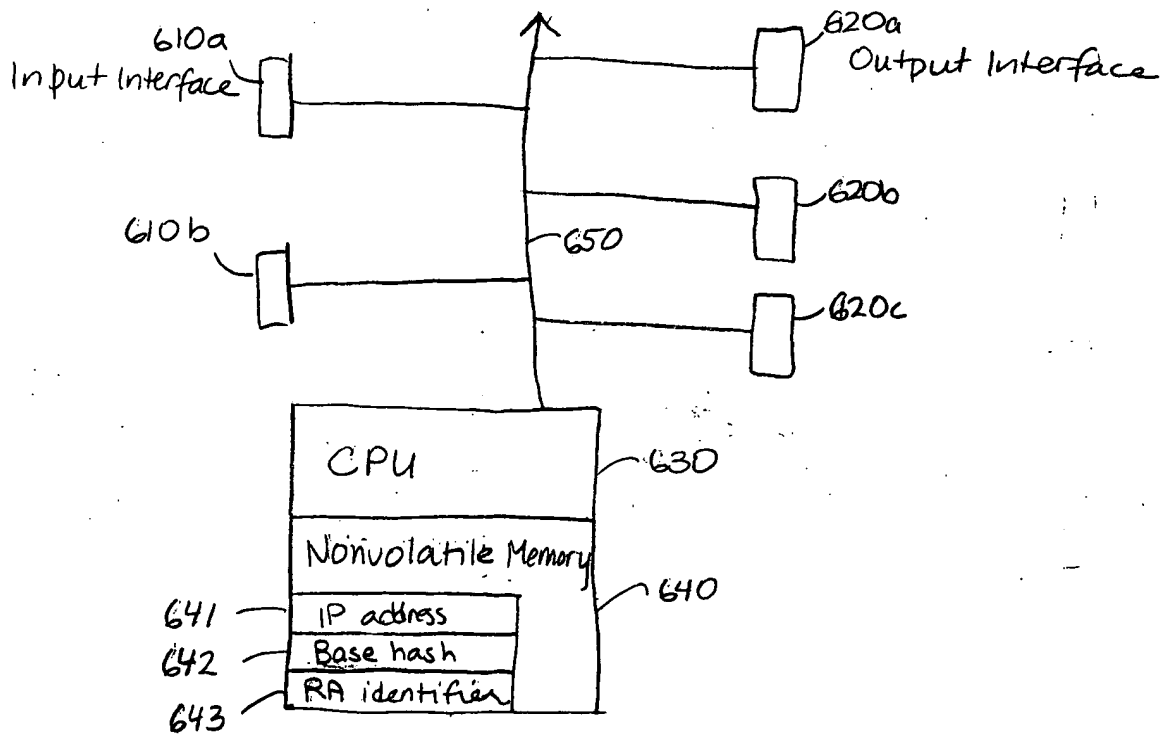 610a
Input Interface
620a
Output Interface
620b
610b
650
620c
CPU
630
Nonvolatile Memory
640
641
IP address
642
Base hash
643
RA identifier